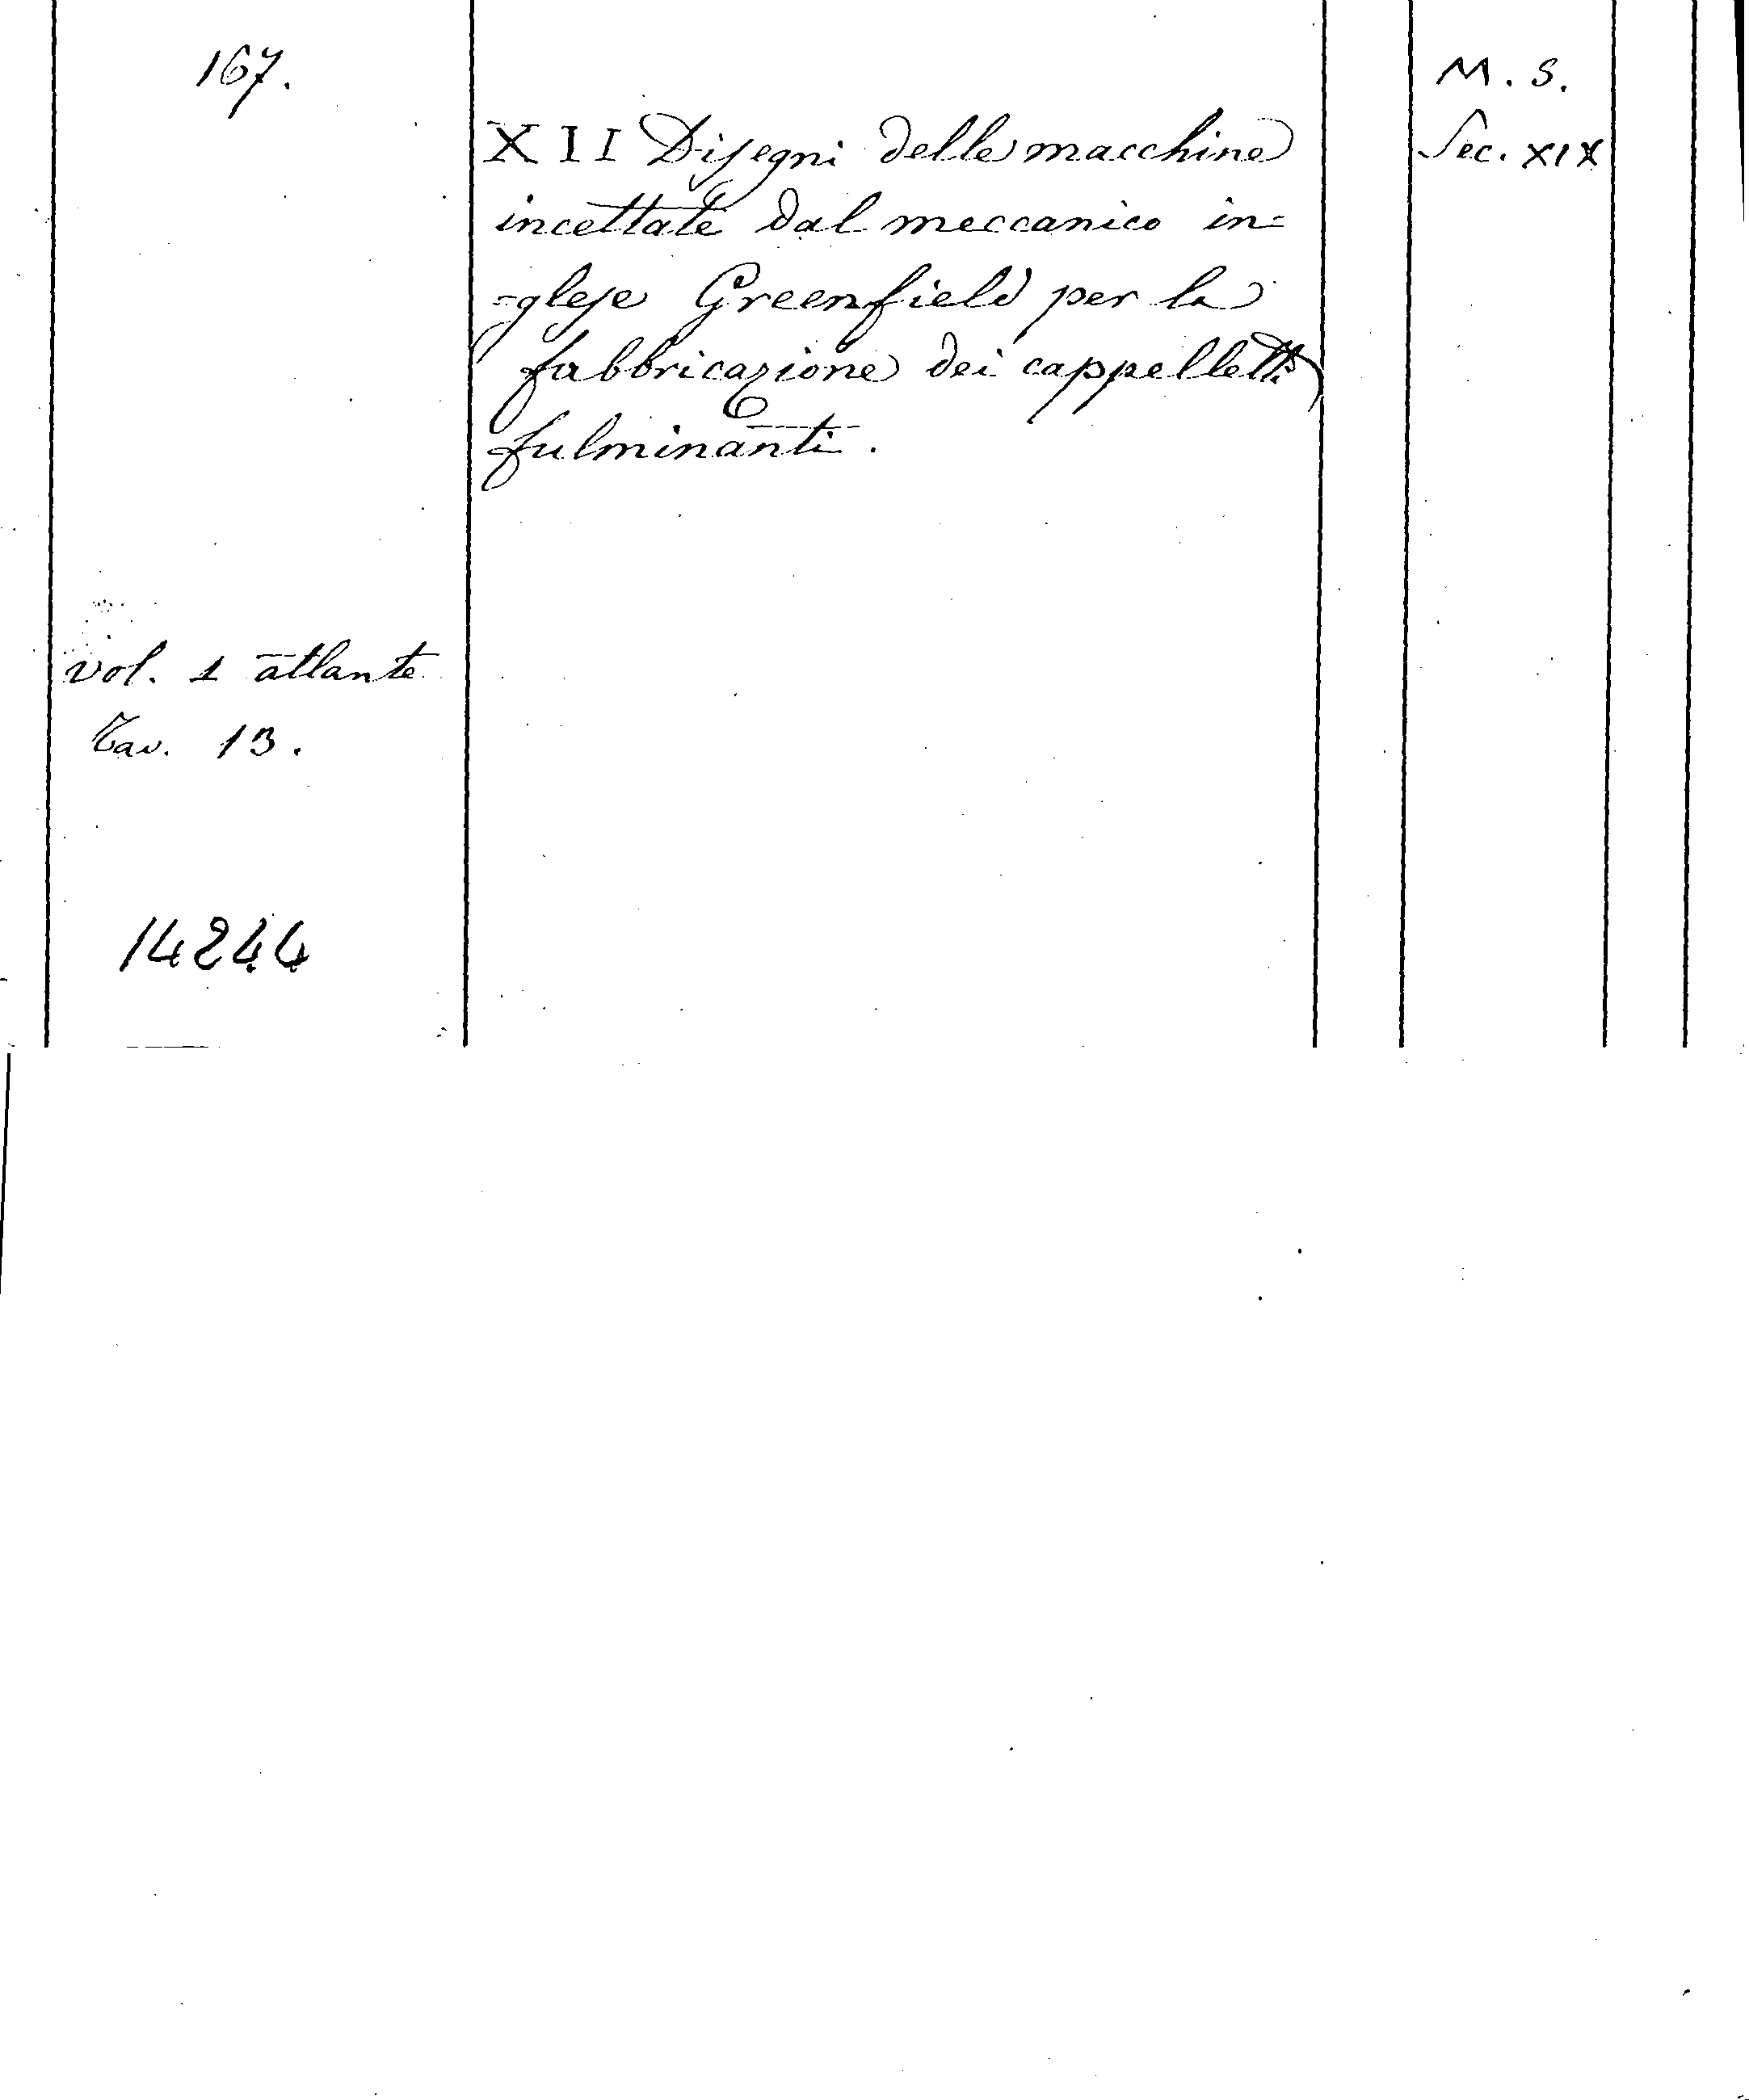 167.
XII Disegni delle macchine
incettate dal meccanico in=
=glese Greenfield per la
fabbricazione dei cappelletti
fulminanti.
M. S.
Sec. XIX
vol. 1 atlante
Tav. 13.
14244